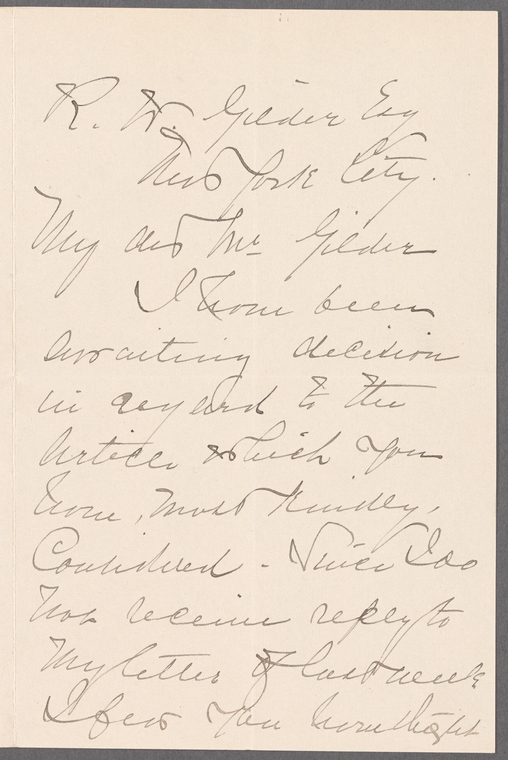 R. W. Gilder Esq
New York City.
My dear Mr Gilder
I have been
awaiting decision
in regard to the
Article which you
have, most kindly,
Considered - Since I do
not receive reply to
My letter of last week
I fear you have thought